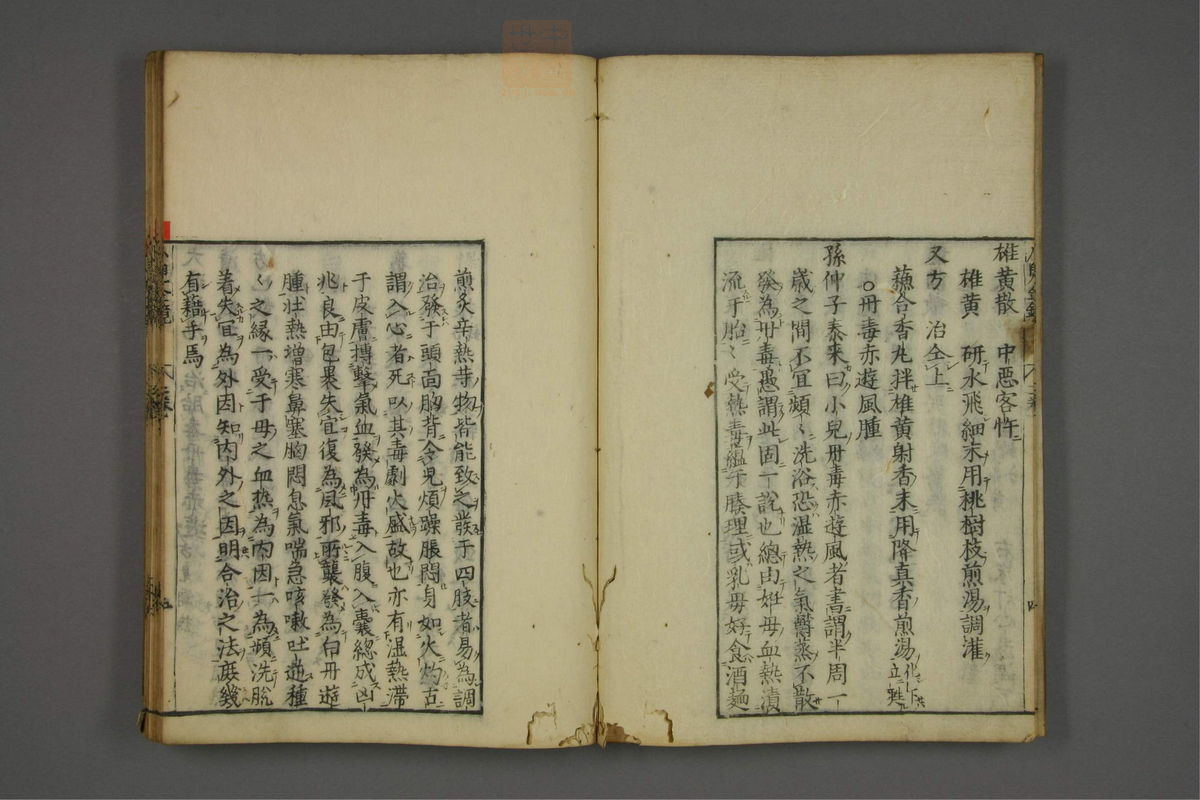 雄黄散　中惡客忤
雄黄　研水飛細末用桃樹枝煎湯調灌
又方　治仝上
蘓合香丸拌雄黄射香末用降真香煎湯化下立甦
○丹毒赤遊風腫
孫仲子泰来曰小兒丹毒赤遊風者書謂半周一
歳之間不宜頻〻洗浴恐湿熱之氣欝蒸不散
發為丹毒愚謂此固一説也總由姙母血熱漬
流于胎〻受熱毒緼于腠理或乳母好食酒麺
煎炙辛熱等物皆能致之發于四肢者易為調
治發于頭面胸背令児煩躁脹悶身如火灼古
謂入心者死以其毒劇火盛故也亦有湿熱滞
于皮膚搏擊氣血發為丹毒入腹入囊總成凶
兆良由包裹失宜復為風邪所襲發為白丹遊
腫壮熱增寒鼻塞胸悶息氣喘急咳嗽吐逆種
〻之縁一受于母之血热為内因一為頻洗脱
着失宜為外因知内外之因明合治之法庶幾
有藉手焉